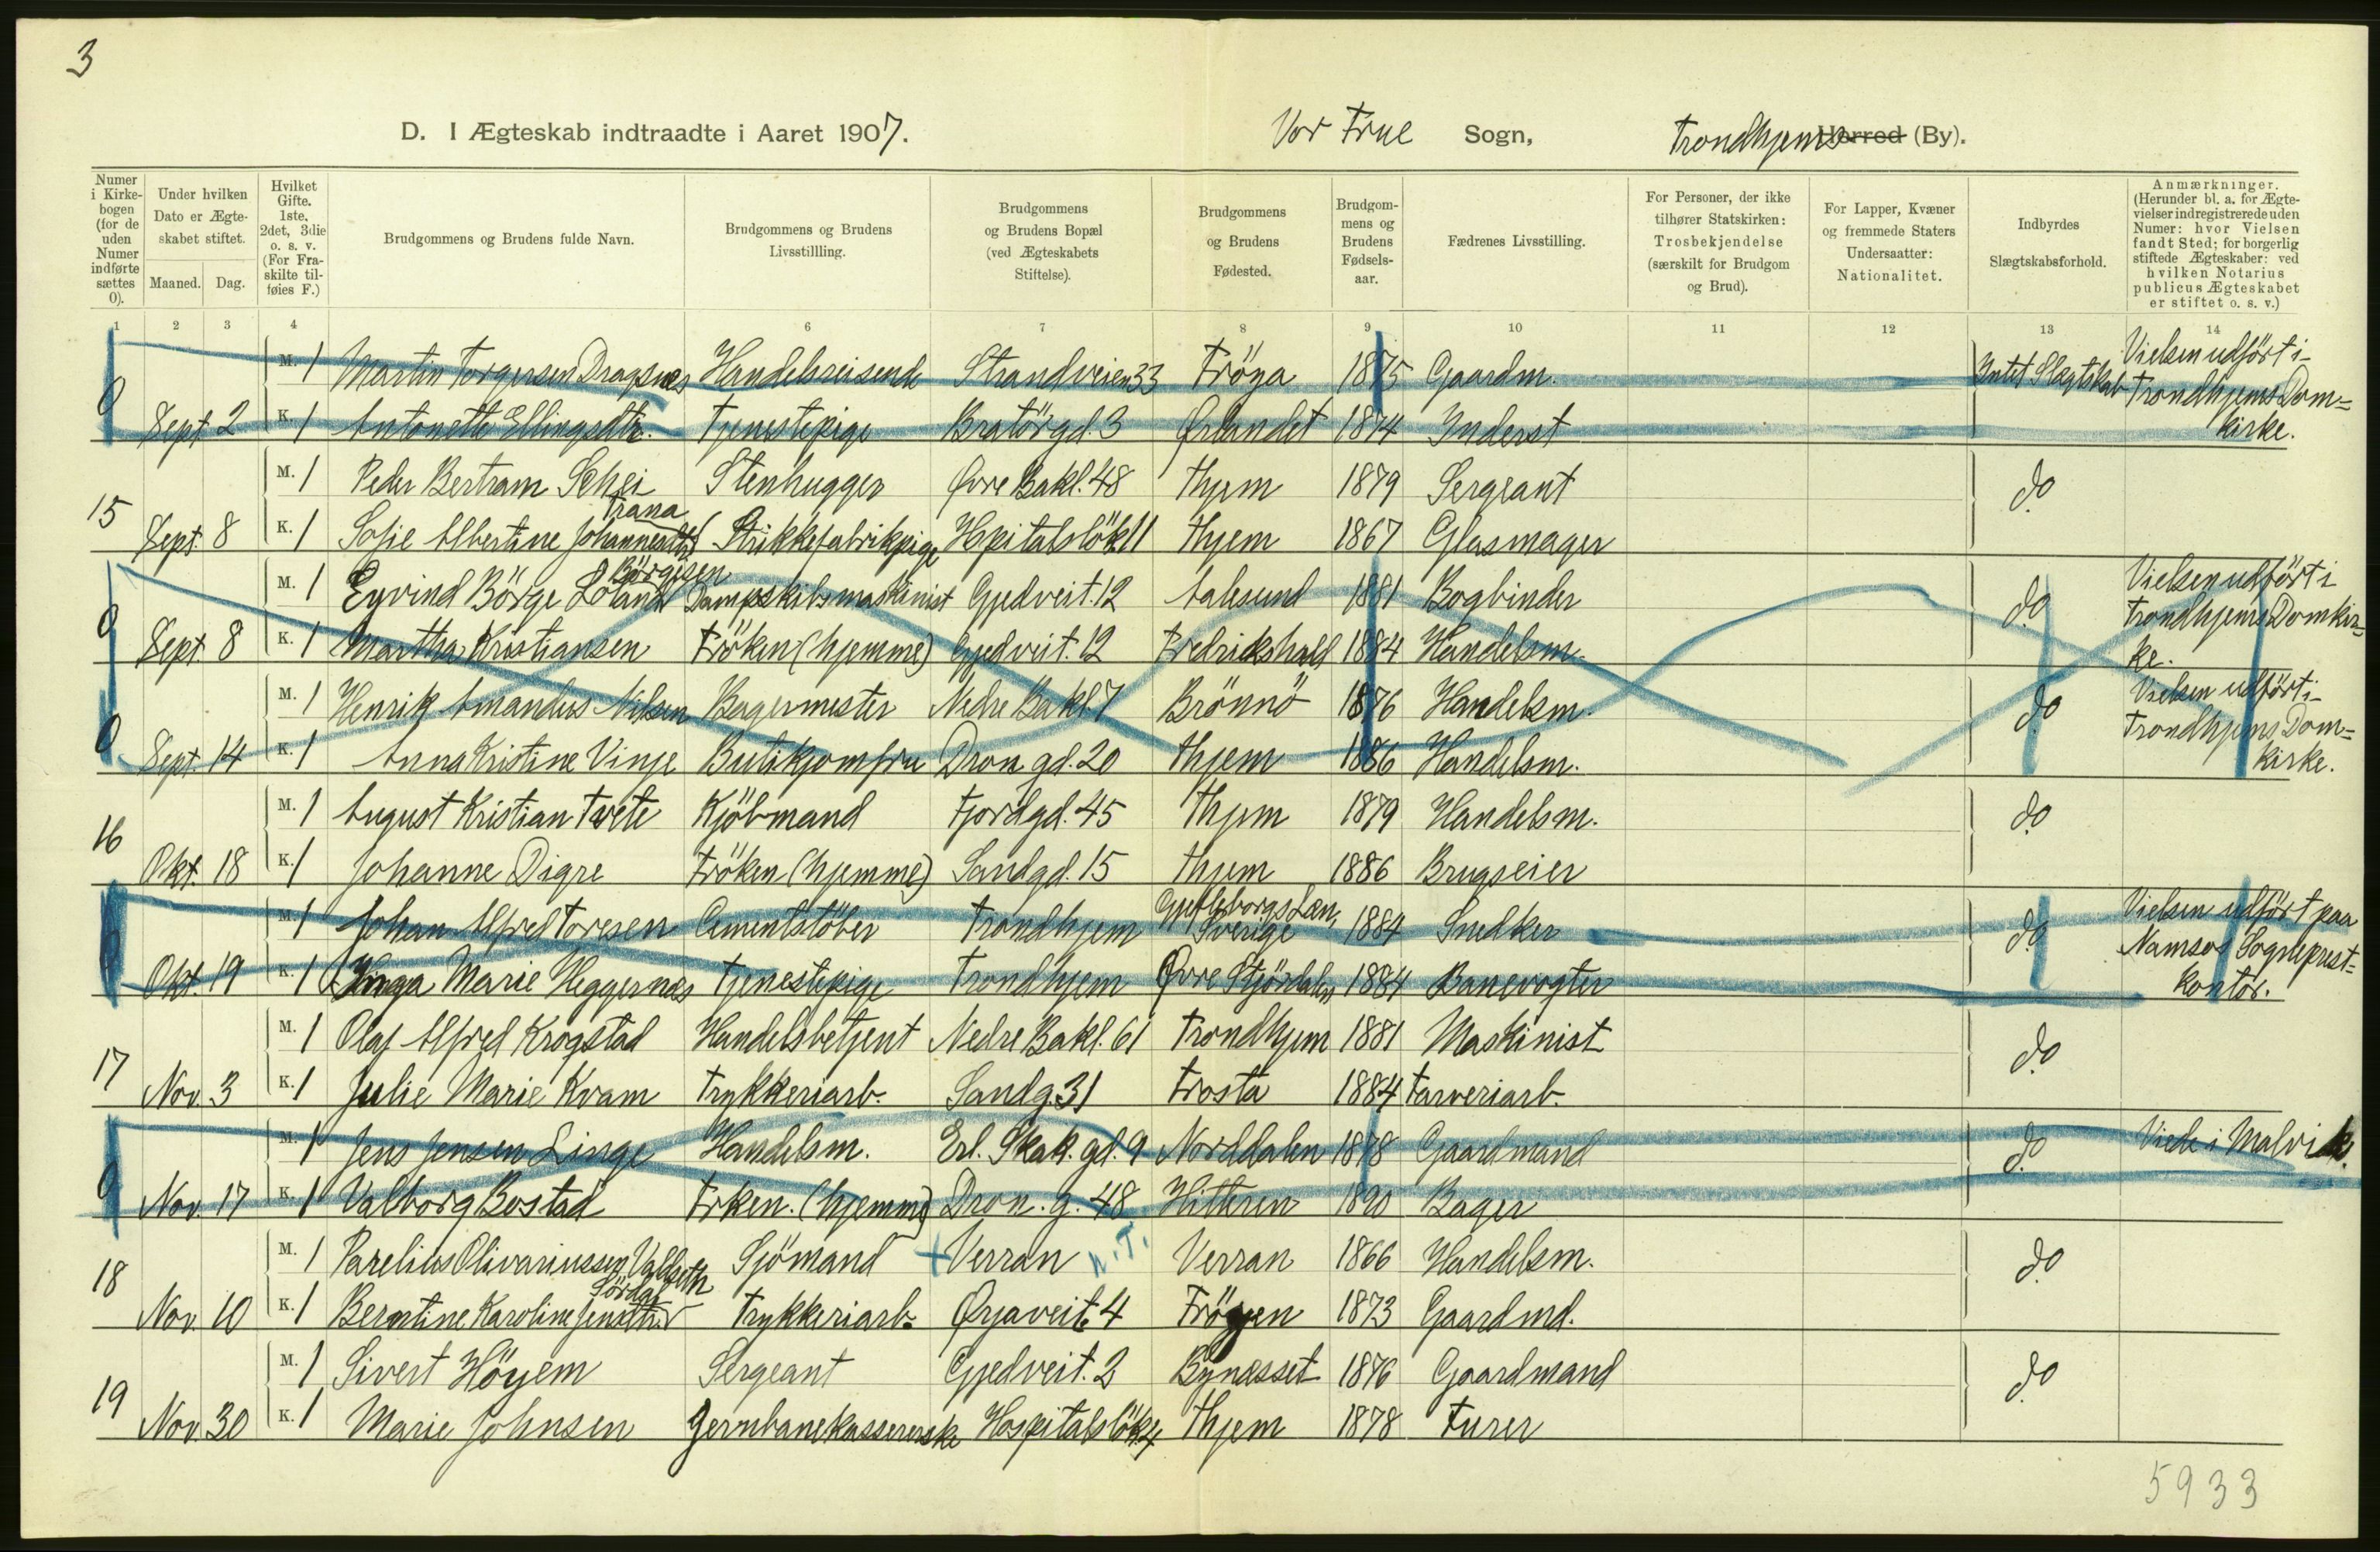 3
D. I Ægteskab indtraadte i Aaret 1907. Vor Frue Sogn, Trondhjems Herred (By).
Numer i Kirkebogen (for de uden Numer indførte sættes 0).
Under hvilken Dato er Ægteskabet stiftet.
Maaned. Dag.
Hvilket Gifte. 1ste, 2det, 3die o. s. v. (For Fraskilte tilføies F.)
Brudgommens og Brudens fulde Navn.
Brudgommens og Brudens Livsstillling.
Brudgommens og Brudens Bopæl (ved Ægteskabets Stiftelse).
Brudgommens og Brudens Fødested.
Brudgommens og Brudens Fødselsaar.
Fædrenes Livsstilling.
For Personer, der ikke tilhører Statskirken: Trosbekjendelse (særskilt for Brudgom og Brud).
For Lapper, Kvæner og fremmede Staters Undersaatter: Nationalitet.
Indbyrdes Slægtskabsforhold.
Anmærkninger. (Herunder bl. a. for Ægtevielser indregistrerede uden Numer: hvor Vielsen fandt Sted; for borgerlig stiftede Ægteskaber: ved hvilken Notarius publicus Ægteskabet er stiftet o. s. v.)
1 2 3 4 6 7 8 9 10 11 12 13 14
M. 1 Martin Torgersen Dragsnes Handelsreisende Strandveien 33 Fröya 1875 Gaardm. Intet Slægtskab Vielsen udført i Trondhjems Dom=
0 Sept 2 K. 1 Antonette Ellingsdtr. Tjenestepige Bratörgd. 3 Ørlandet 1874 Inderst kirke.
M. 1 Peder Bertram Schei Stenhugger Øvre Bakl. 48 Thjem 1879 Sergeant do
Trana
15 Sept. 8 K. 1 Sofie Albertine Johannesdtr Strikkefabrikpige Hspitalslök 11 Thjem 1867 Glasmager
Börgesen
M. 1 Eyvind Börge Loland Dampskibsmaskinist Gjedveit. 12 Aalesund 1881 Bogbinder do Vielsen udfört i
0 Sept. 8 K. 1 Martha Kristiansen Fröken (hjemme) Gjedveit. 12 Fredrikshald 1884 Handelsm. Trondhjems Domkir=
ke.
M. 1 Henrik Amandus Nilsen Bagermester Nedre Bakl. 7 Brönnö 1876 Handelsm. do Vielsen udfört i
0 Sept. 14 K. 1 Anna Kristine Vinje Butikjomfru Dron gd. 20 Thjem 1886 Handelsm. Trondhjems Dom=
kirke.
M. 1 August Kristian Tvete Kjöbmand Fjordgd. 45 Thjem 1879 Handelsm. do
16 Okt. 18 K. 1 Johanne Digre Fröken (hjemme) Sandgd. 15 Thjem 1886 Brugseier
M. 1 Johan Alfred Toresen Cementstöber Trondhjem Gjefleborgs Læn, Sverige 1884 Snedker do Vielsen udfört paa
0 Okt. 19 K. 1 Inga Marie Heggernæs Tjenestepige Trondhjem Øvre Stjördalen 1884 Banevogter Namsos Sogneprest=
kontor.
M. 1 Olaf Alfred Krogstad Handelsbetjent Nedre Bakl. 61 Trondhjem 1881 Maskinist do
17 Nov. 3 K. 1 Julie Marie Kvam Trykkeriarb. Sandg. 31 Frosta 1884 Farveriarb.
M. 1 Jens Jensen Linge Handelsm. Erl. Skak. gd. 9 Norddalen 1878 Gaardmand do Viede i Malvik.
0 Nov. 17 K. 1 Valborg Bostad Frken. (hjemme) Dron. g. 48 Hitteren 1890 Bager
M. 1 Parelius Olivariussen Valseth Sjömand + Verran n.T. Verran 1866 Handelsm. do
Sördal
18 Nov. 10 K. 1 Berntine Karoline Jensdtr. Trykkeriarb. Øyaveit. 4 Fröyen 1873 Gaardmd.
M. 1 Sivert Höyem Sergeant Gjedveit. 2 Bynesset 1876 Gaardmand do
19 Nov. 30 K. 1 Marie Johnsen Jernbanekassererske Hospitalslök. 4 Thjem 1878 Furer
5933